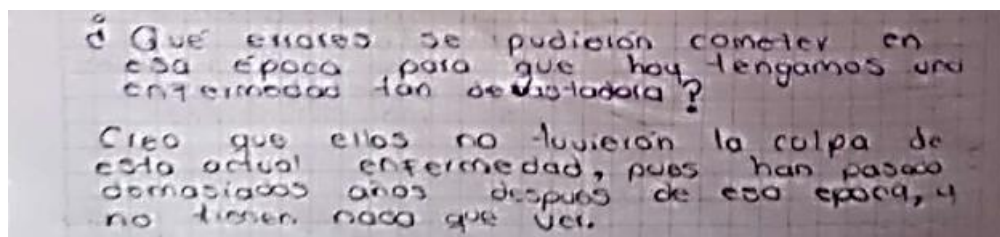 ¿ Qué errores se pudierón cometer en
esa época para que hoy tengamos una
enfermedad tan devastadora?
Creo que ellos no tuvierón la culpa de
esta actual enfermedad, pues han pasado
demasiados años después de esa epoca, y
no tienen nada que ver.